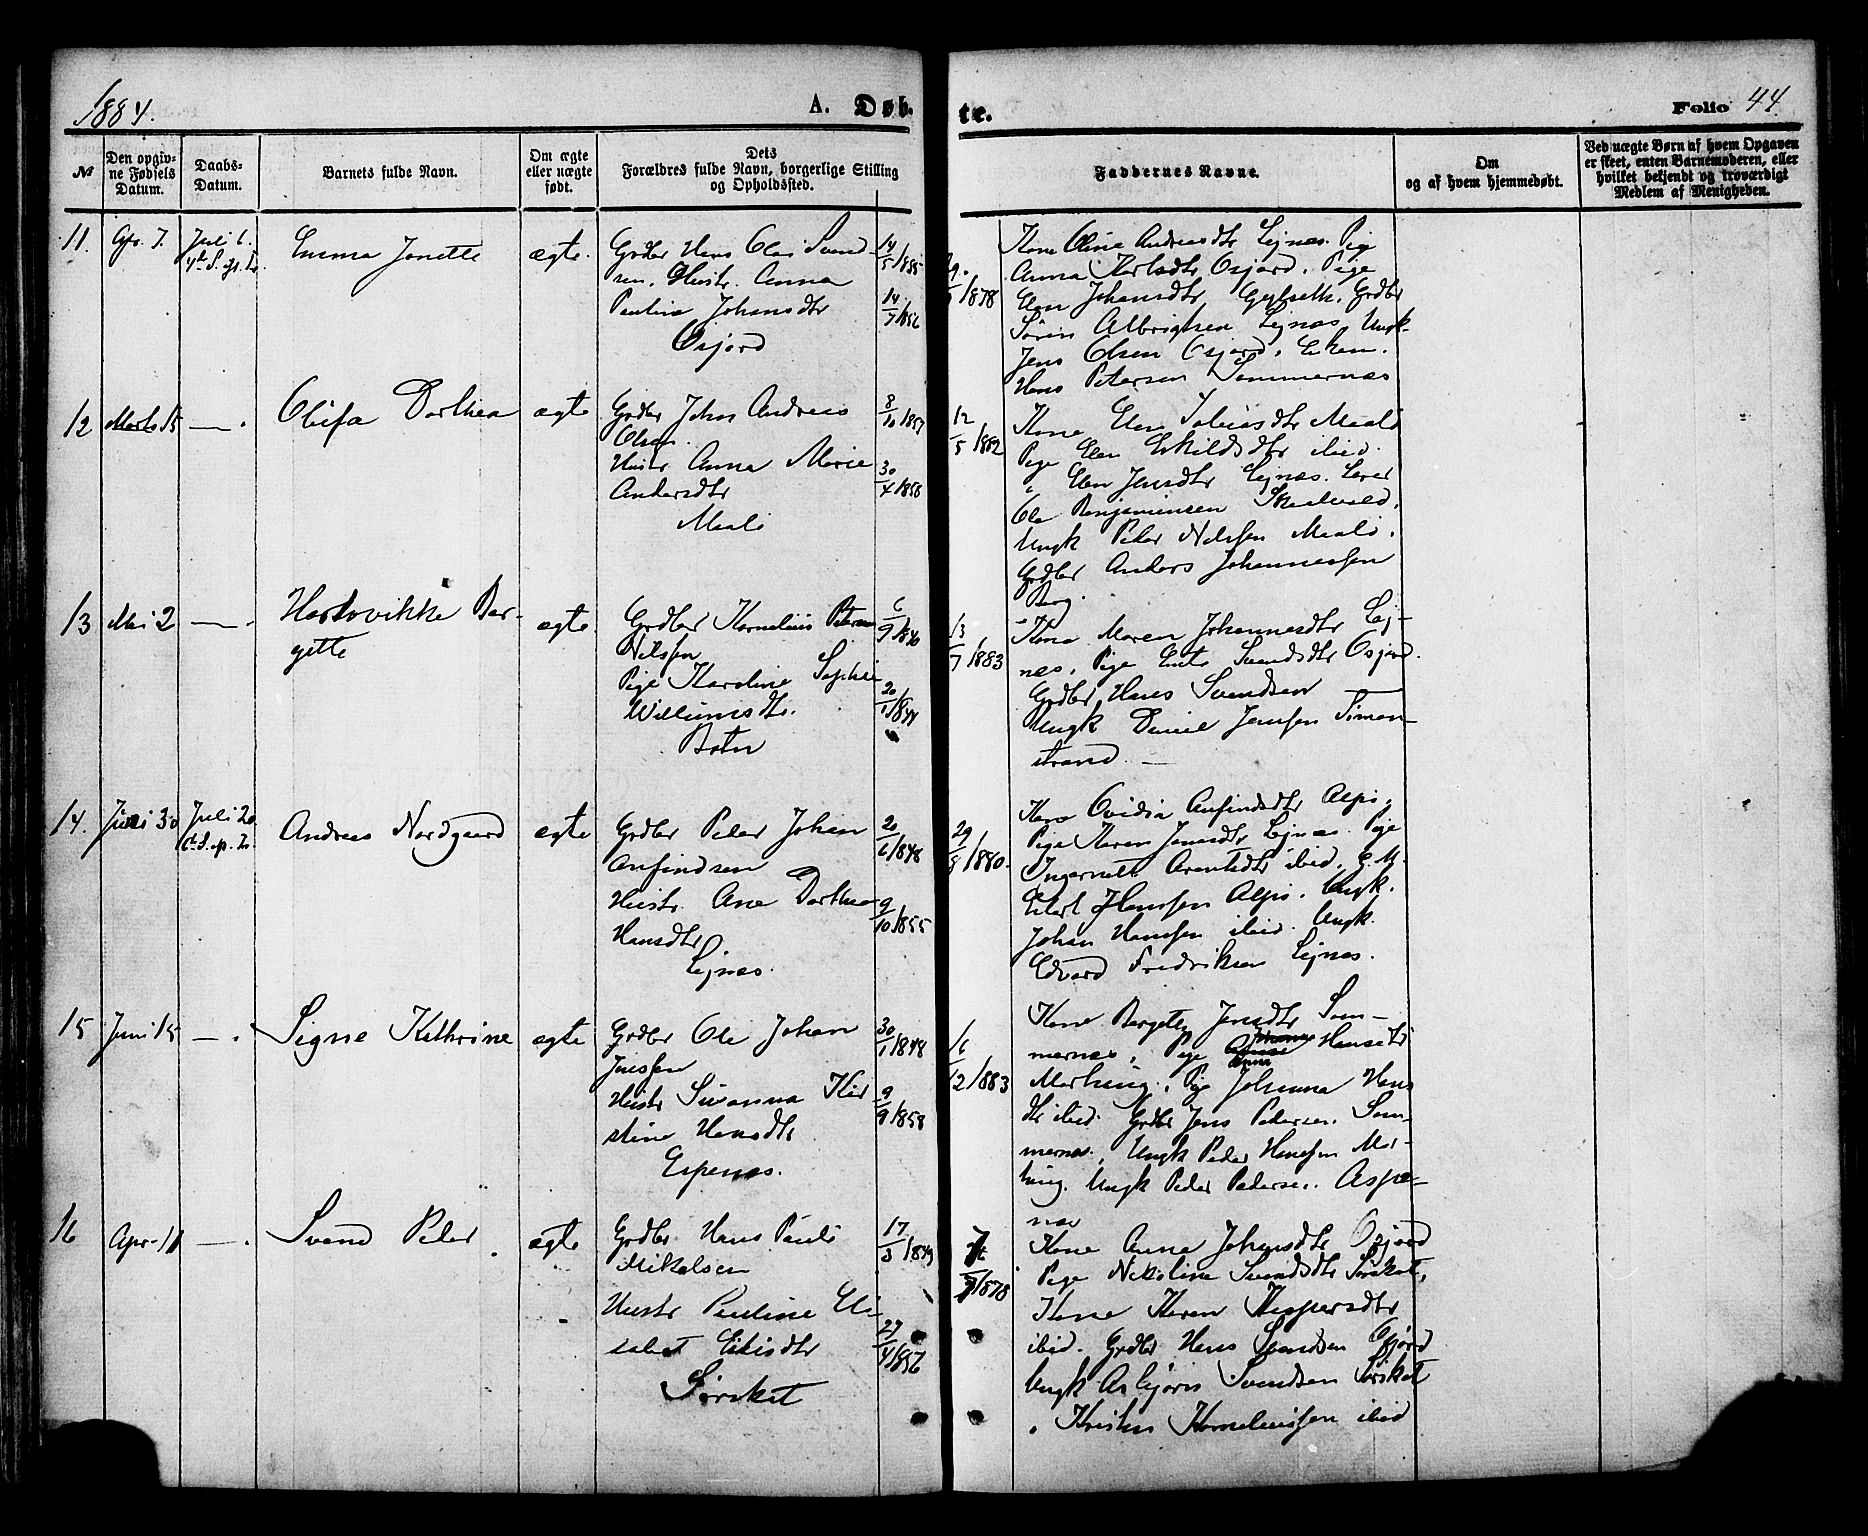 1884.
A. Døb.
te.
Folio 44
№
Den opgiv-
ne Fødsels
Datum.
Daabs-
Datum.
Barnets fulde Navn.
Om ægte
eller uægte
født.
Dets
Forældres fulde Navn, borgerlige Stilling
og Opholdssted.
Faddernes Navne.
Om
og af hvem hjemmedøbt.
Ved uægte Børn af hvem Opgaven
er skeet, enten Barnemoderen, eller
hvilket bekjendt og troværdigt
Medlem af Menigheden.
11.
7.
Juli 6.
Emma Jonette
ægte.
Grdbr Hans Olai Svend-
sen. Hustr. Anna
Pauline Johansdtr
Osjord
14/5/1855
14/7/1856
/1878
Kone Olina Andreasdtr Lejnæs. Pige
Anna Karlsdtr Osjord. Pige
Elen Johansdtr Gylseth. Grdbr
Sören Albrigtsen Lejnæs. Ungk.
Jens Olsen Osjord. Enkem.
Hans Petersen Sommernæs
12
Marts 15
— .
Olufa Dorthea
ægte
Grdbr John Andreas
Olsen.
Hustr Anna Marie
Andersdtr
Maalö
8/10/1857
30/4/1858
12/5/1882
Kone Elen Tobiasdtr Maalö
Pige Elen Eskildsdtr ibid.
" Elen Jensdtr Lejnæs. Lærer
Ole Benjaminsen
Ungk Peder Nilssen Maalö.
Grdbr Anders Johannessen
Berg.
13
Mai 2
— .
Hartvikke Ber-
gitte
ægte.
Grdbr Kornelius Petersen
Nilssen
Pige Karoline Sophie
Willumsdtr.
Botn
6/9/1840
20/1/1844
13/7/1883
Kone Maren Johannesdtr Lej-
næs. Pige Svendsdtr Osjord.
Grdbr Hans Svendsen —
Ungk Daniel Jenssen Simon-
strand. —
14.
Juni 30
Juli 20
Andreas Nordgaard
ægte
Grdbr Peder Johan
Anfindsen
Hustr. Ane Dorthea
Hansdtr
Lejnæs.
20/6/1848
9/10/1855
29/8/1880.
Kone Ovidia Anfindsdtr Alpö.
Pige Karen Jensdtr Lejnæs. Pige
Ingernette Arentsdtr ibid. G.M.
Edert Hanssen Alpö. Ungk.
Johan Hanssen ibid. Ungk.
Edvard Fredriksen Lejnæs.
15
Juni 15
— .
Signe Kathrine
ægte
Grdbr Ole Johan
Jenssen
Hustr Susanna Kir-
stine Hansdtr
Espenæs.
30/1/1848
9/9/1858
16/12/1883
Kone Bergete Jensdtr Som-
mernæs, Pige Anna Hansdtr
Mørking. Pige Johanna Hans
dtr ibid. Grdbr Jens Pedersen. Som-
mernæs. Ungk Peder Hanssen Mør-
king. Ungk Peder Pedersen. Aspe-
næs
16
Apr. 11
— .
Svend Peder
ægte
Grdbr Hans Pauli
Mikalsen
Hustr Pauline Eli-
sabet Eliasdtr
Sørskot
17/3/1849
27/4/1856
/1878
Kone Anna Johansdtr Osjord
Pige Nikoline Svendsdtr Sørskot.
Kone Karen Kaspersdtr
ibid. Grdbr Hans Svendsen Osjord
Ungk Asbjörn Svendsen Sørskot
" Kristen Korneliussen ibid